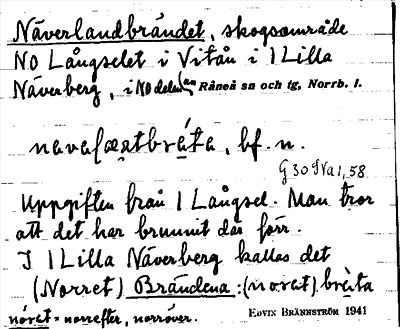 Näverlandbrändet, skogsområde
NO Långselet i Vitån i 1 Lilla
Näverberg, i NO delen av Råneå sn och tg, Norrb. l.
bf. n.
G 30 9Va1, 58
Uppgiften från 1 Långsel. Man tror
att det har brunnit där förr.
I 1 Lilla Näverberg kallas det
(Norret) Brändena: (nórat) bräta
nórat = norrefter, norröver. EDVIN BRÄNNSTRÖM 1941